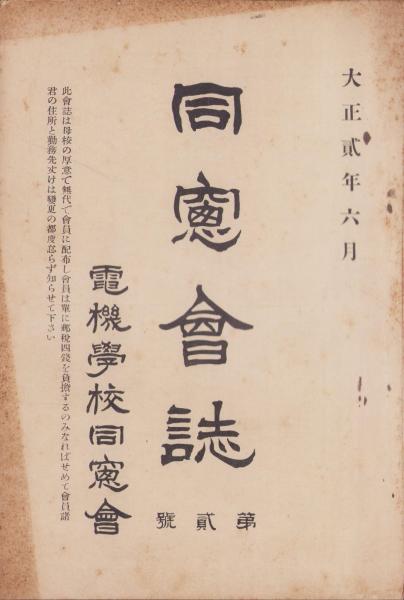 大正貳年六月
同窓會誌
第貳號
電機學校同窓會
此會誌は母校の厚意で無代で會員に配布し會員は單に郵稅四錢を負擔するのみなればせめて會員諸
君の住所と勤務先丈けは變更の都度怠らず知らせて下さい